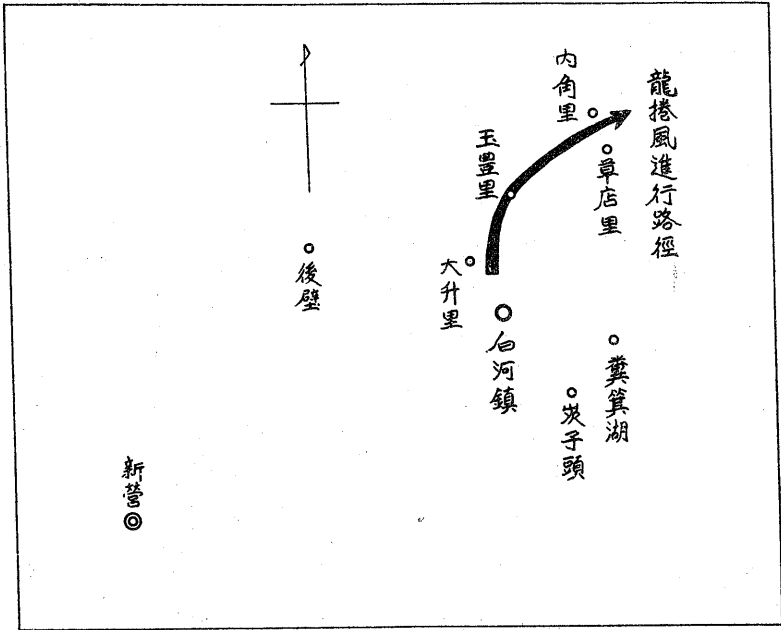 龍捲風進行路徑
內角里
草店里
玉豐里
大升里
白河鎮
糞箕湖
茨子頭
後壁
新營